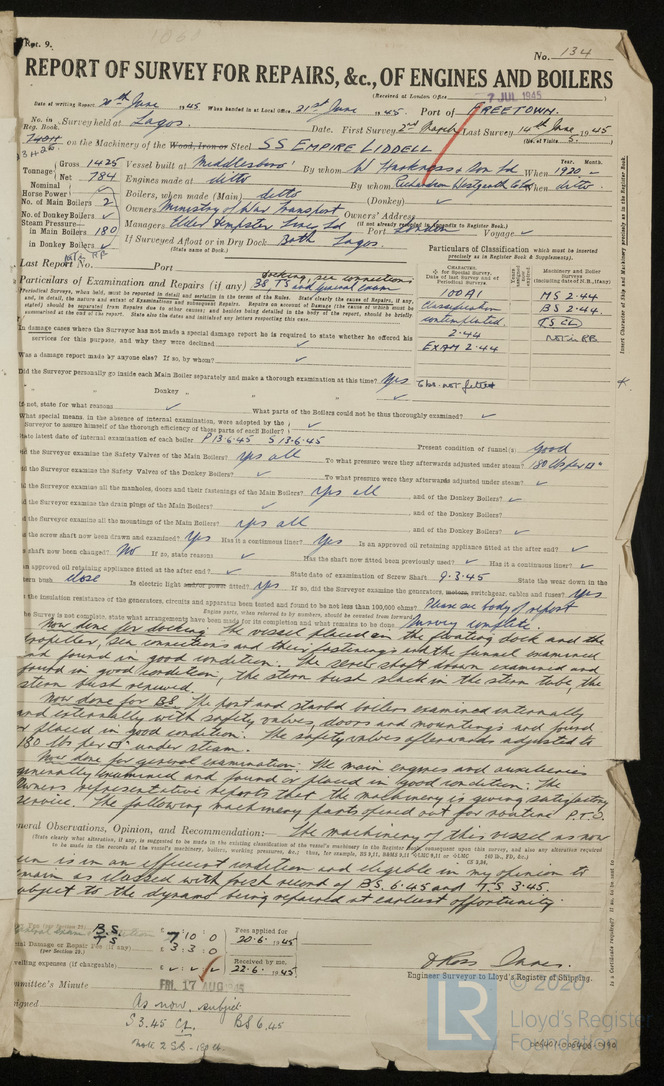 Rpt. 9.
No. 134
REPORT OF SURVEY FOR REPAIRS, &c., OF ENGINES AND BOILERS
(Received at London Office 7 JUL 1945)
Date of writing Report 20th June 1945 When handed in at Local Office 21st June 1945. Port of FREETOWN.
No. in Reg. Book. Survey held at Lagos. Date. First Survey 2nd March Last Survey 14th June 1945
(No. of Visits 5.)
on the Machinery of the Wood, Iron or Steel SS EMPIRE LIDDELL
Tonnage Gross 1425 Vessel built at Middlesboro' By whom W Harkness & Son Ld When 1920
Net 784 Engines made at ditto By whom Richardson Westgarth & Co When ditto
Nominal Horse Power
No. of Main Boilers 2 Boilers, when made (Main) ditto (Donkey)
No. of Donkey Boilers Owners Ministry of War Transport Owners' Address
(if not already recorded in Appendix to Register Book.)
Steam Pressure in Main Boilers 180 Managers Elder Dempster Lines Ld Port London Voyage
in Donkey Boilers If Surveyed Afloat or in Dry Dock Both Lagos
(State name of Dock.)
Particulars of Classification (which must be inserted precisely as in Register Book & Supplements).
Last Report No. Port
Particulars of Examination and Repairs (if any) BS TS docking, sea connections and general exam
CHARACTER
100 A1
Classification
contemplated
2.44
EXAM 2.44
MS 2.44
BS 2.44
TS CL
NOT in RB
In damage cases where the Surveyor has not made a special damage report he is required to state whether he offered his
services for this purpose, and why they were declined
Was a damage report made by anyone else? If so, by whom?
Did the Surveyor personally go inside each Main Boiler separately and make a thorough examination at this time? Yes
Donkey
If not, state for what reasons What parts of the Boilers could not be thus thoroughly examined?
What special means, in the absence of internal examination, were adopted by the
Surveyor to assure himself of the thorough efficiency of those parts of each Boiler?
State latest date of internal examination of each boiler P 13.6.45 S 13.6.45 Present condition of funnel(s) Good
Did the Surveyor examine the Safety Valves of the Main Boilers? Yes all To what pressure were they afterwards adjusted under steam? 180 lbs per □"
Did the Surveyor examine the Safety Valves of the Donkey Boilers? To what pressure were they afterwards adjusted under steam?
Did the Surveyor examine all the manholes, doors and their fastenings of the Main Boilers? Yes all and of the Donkey Boilers?
Did the Surveyor examine the drain plugs of the Main Boilers? and of the Donkey Boilers?
Did the Surveyor examine all the mountings of the Main Boilers? yes all and of the Donkey Boilers?
Has the screw shaft now been drawn and examined? Yes Has it a continuous liner? Yes Is an approved oil retaining appliance fitted at the after end?
Has shaft now been changed? No If so, state reasons Has the shaft now fitted been previously used? Has it a continuous liner?
Is an approved oil retaining appliance fitted at the after end? State date of examination of Screw Shaft 9.3.45 State the wear down in the
stern bush close Is electric light and/or power fitted? yes If so, did the Surveyor examine the generators, motors, switchgear, cables and fuses? Yes
Has the insulation resistance of the generators, circuits and apparatus been tested and found to be not less than 100,000 ohms? Please see body of report
If the Survey is not complete, state what arrangements have been made for its completion and what remains to be done Survey complete.
Now done for docking: The vessel placed in the floating dock and the
propeller, sea connections and their fastenings and the funnel examined
and found in good condition. The screw shaft drawn examined and
found in good condition, the stern bush slack in the stern tube, the
stern bush renewed.
Now done for BS. The port and starbd boilers examined internally
and externally with safety valves, doors and mountings and found
or placed in good condition. The safety valves afterwards adjusted to
180 lbs per □" under steam.
Now done for general examination: The main engines and auxiliaries
generally examined and found or placed in good condition. The
Owners representative reports that the machinery is giving satisfactory
service. The following machinery parts opened out for routine P.T.O.
General Observations, Opinion, and Recommendation:— The machinery of this vessel as now
seen is in an efficient condition and eligible in my opinion to
remain as classed with fresh record of BS. 6.45 and T.S 3.45.
subject to the dynamo being repaired at earliest opportunity.
B.S. £ 7:10:0 Fees applied for
TS £ 3:3:0 20.6.1945
Damage or Repair Fee (if any)
(per Section 29.)
Travelling expenses (if chargeable) Received by me, 22.6.1945
Engineer Surveyor to Lloyd's Register of Shipping.
Committee's Minute FRI. 17 AUG 1945
Assigned As now, subject
S 3.45 CL BS 6.45
© 2020
LR
Lloyd's Register
Foundation